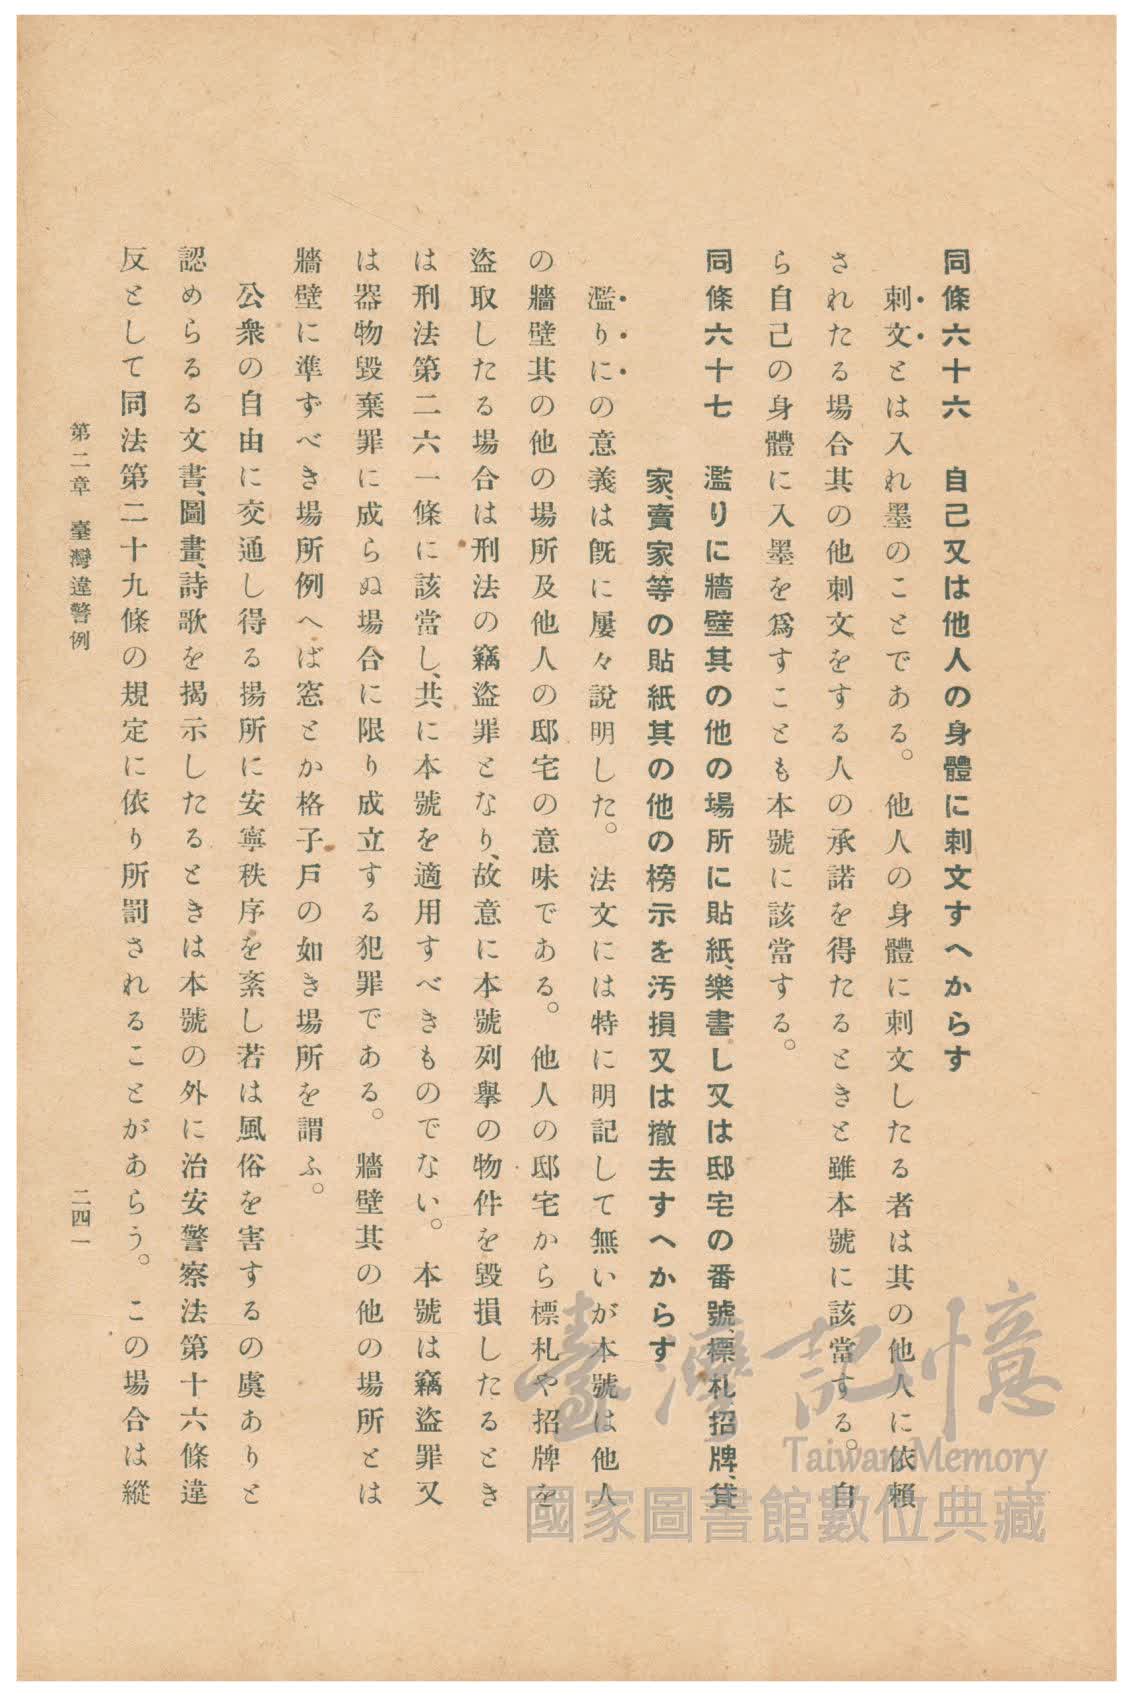 同條六十六　自己又は他人の身體に刺文すへからす
刺文とは入れ墨のことである。他人の身體に刺文したる者は其の他人に依賴
されたる場合其の他刺文をする人の承諾を得たるときと雖本號に該當する。自
ら自己の身體に入墨を爲すことも本號に該當する。
同條六十七　濫りに牆壁其の他の場所に貼紙、樂書し又は邸宅の番號、標札、招牌、貸
家、賣家等の貼紙其の他の榜示を汚損又は撤去すへからす
濫りにの意義は旣に屢々說明した。法文には特に明記して無いが本號は他人
の牆壁其の他の場所及他人の邸宅の意味である。他人の邸宅から標札や招牌を
盜取したる場合は刑法の竊盜罪となり、故意に本號列擧の物件を毀損したるとき
は刑法第二六一條に該當し、共に本號を適用すべきものでない。本號は竊盜罪又
は器物毀棄罪に成らぬ場合に限り成立する犯罪である。牆壁其の他の場所とは
牆壁に準ずべき場所例へば窓とか格子戶の如き場所を謂ふ。
公衆の自由に交通し得る揚所に安寧秩序を紊し若は風俗を害するの虞ありと
認めらるる文書、圖畫、詩歌を揭示したるときは本號の外に治安警察法第十六條違
反として同法第二十九條の規定に依り所罰されることがあらう。この場合は縱
第二章　臺灣違警例
二四一
臺灣記憶
Taiwan Memory
國家圖書館數位典藏